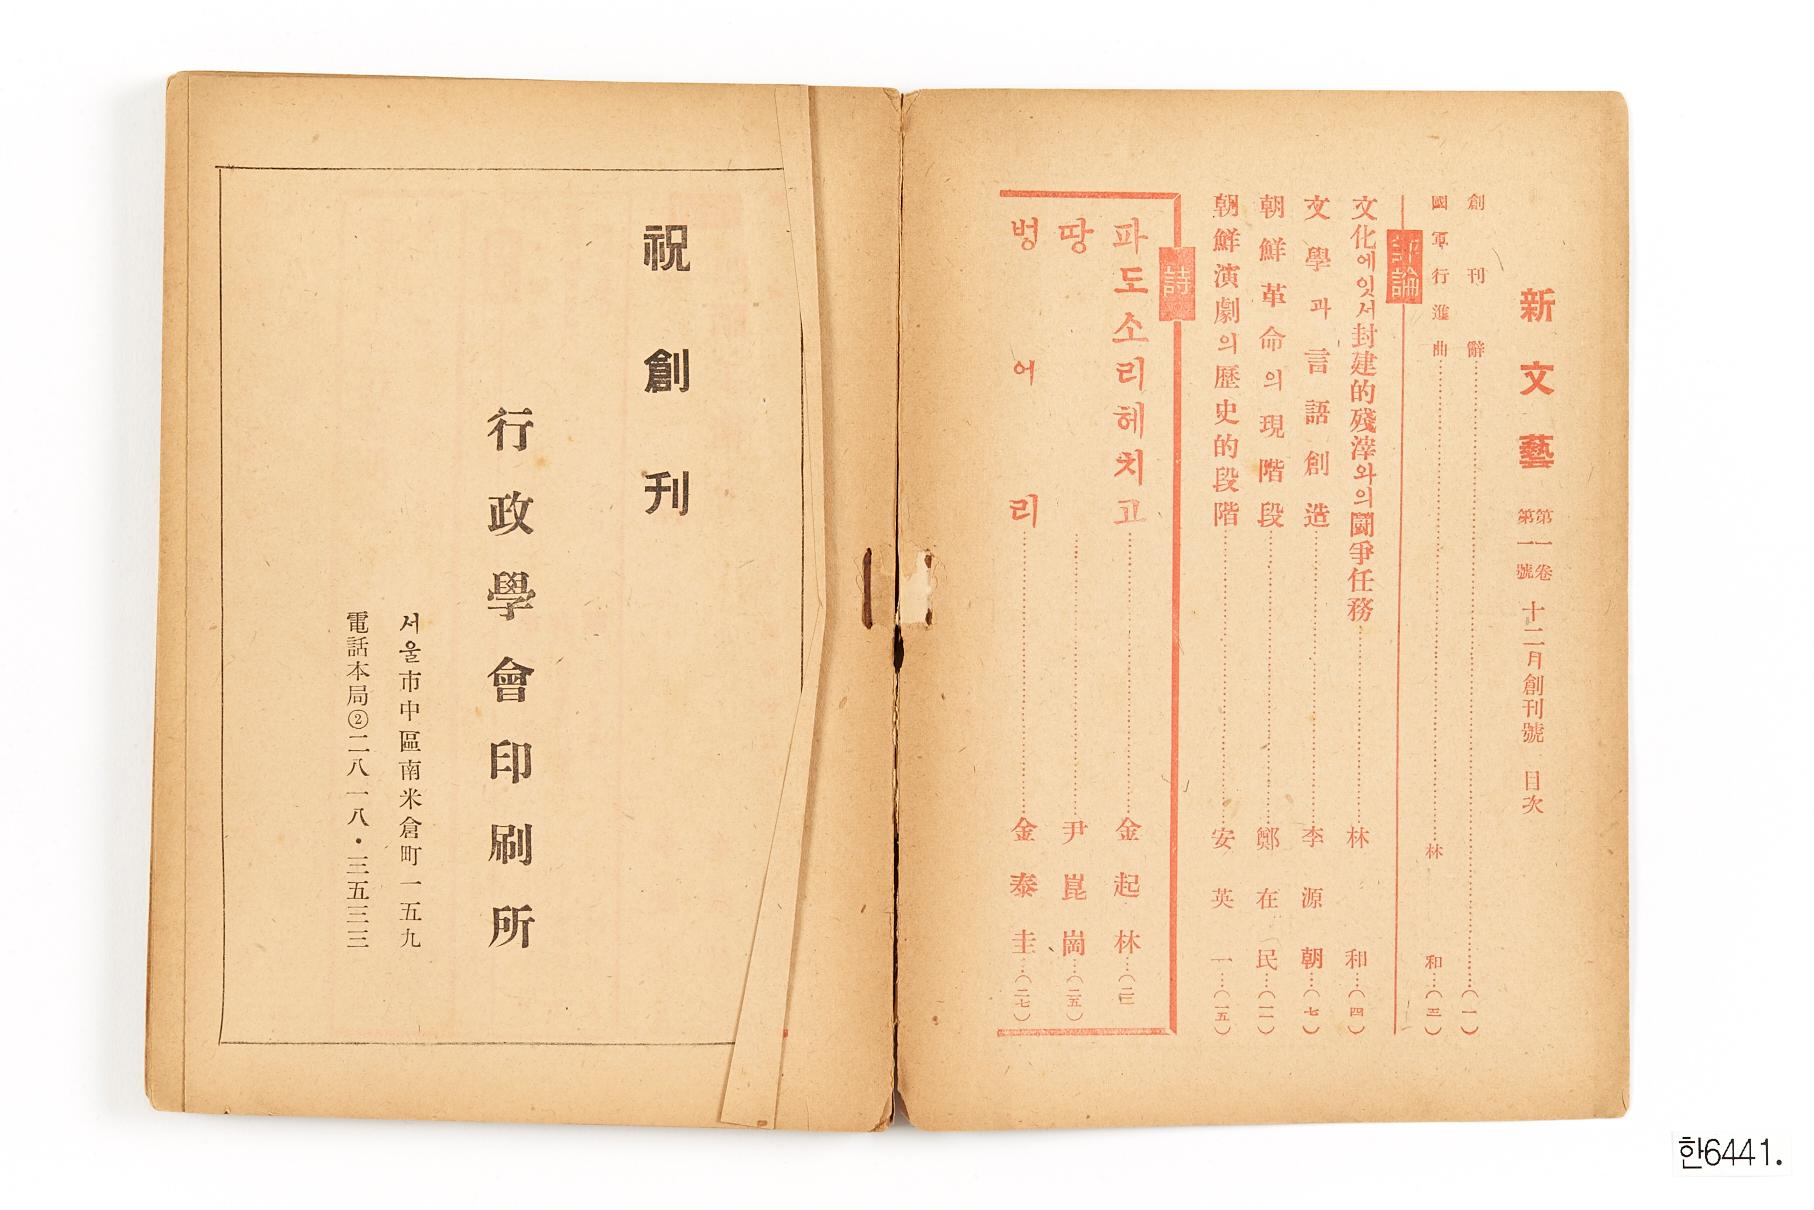 新文藝 第一卷 第一號 十二月創刊號 目次
創刊辭……(一)
國軍行進曲……林和…(三)
評論
文化에잇서封建的殘滓와의鬪爭任務……林和…(四)
文學과言語創造……李源朝…(七)
朝鮮革命의現階段……鄭在民…(一一)
朝鮮演劇의歷史的段階……安英一…(一五)
詩
파도소리헤치고……金起林…(二三)
땅……尹崑崗…(二五)
벙어리……金泰圭…(二七)
祝創刊
行政學會印刷所
서울市中區南米倉町一五九
電話本局②二八一八・三五三三
한6441.